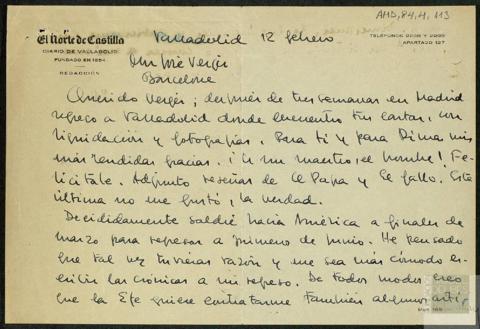 AMD,84,4,113
El Norte de Castilla
DIARIO DE VALLADOLID
FUNDADO EN 1854
REDACCIÓN
TELEFONOS 2038 Y 2099
APARTADO 127
Valladolid 12 febrero
Don José Vergés
Barcelona
Querido Vergés; después de tres semanas en Madrid
regreso a Valladolid donde encuentro tus cartas, con
liquidación y fotografías. Para ti y para Dimas mis
más rendidas gracias. ¡Es un maestro, el hombre! Fe-
licítale. Adjunto reseñas de El Papa y El gallo. Esta
última no me gustó, la verdad.
Decididamente saldré hacia América a finales de
marzo para regresar a primero de junio. He pensado
que tal vez tuvieras razón y me sea más cómodo es-
cribir las crónicas a mi regreso. De todos modos creo
que la Efe quiere contratarme también algunos artí-